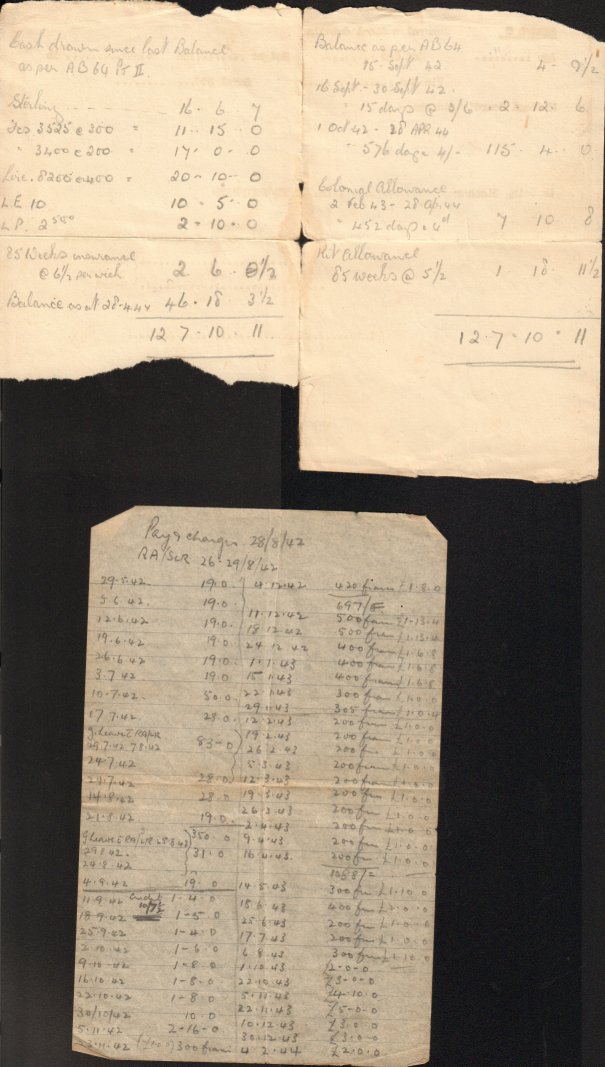 Cash drawn since last Balance
as per AB 64 Pt II.
Sterling - - - - 16 . 6 . 7
Fcs 3525 @ 300 = 11 . 15 . 0
" 3400 @ 200 = 17 . 0 . 0
Lire. 8200 @ 400 = 20 - 10 - 0
L E 10 10 - 5 - 0
L P. 2 500 2 - 10 . 0
85 Weeks insurance
@ 6½ per week 2 . 6 . 0½
Balance as at 28-4-44 46 - 18 3½
12 7 - 10 . 11
Balance as per AB 64
15. Sept 42 4 - 9½
16 Sept - 30 Sept 42.
" 15 days @ 3/6 . 2 - 12 . 6
1 Oct 42 - 28 APR 44
" 576 days 4/- 115 . 4 . 0
Colonial Allowance
2 Feb 43 - 28 Apr. 44
" 452 days @ 4d 7 10 8
Kit Allowance
85 weeks @ 5½ 1 18 . 11½
12 . 7 - 10 - 11
Pay & charges 28/8/42
RA/SLR 26-29/8/42
29.5.42 19.0.
5.6.42. 19.0.
12.6.42 19.0.
19.6.42 19.0.
26.6.42 19.0
3.7.42 19.0
10.7.42. 50.0
17.7.42. 28.0
83-0
24.7.42
28.0
14.8.42 28.0
21.8.42 19.0.
350.0
29.8.42. 31.0
24.8.42
4.9.42 19.0
11.9.42 Credit 1-4.0
18.9.42 1-5.0
25.9.42 1-4.0
2.10.42 1-6.0
9.10.42 1-8.0
16.10.42 1-8.0
22.10.42 1-8.0
30/10/42 10.0
5.11.42 2-16-0
300 fran
4.12.42 420 francs £1.8.0
697/6
11.12.42 500 fran £1-13-4
18.12.42 500 fran £1.13.4
24.12.42 400 fran £1.6.8
1.1.43 400 fran £1.6.8
15.1.43 400 fran £1.6.8
22.1.43 300 fran £1.0.0
29.1.43 305 fran £1.0.4
12.2.43 200 fran £1.0.0
19.2.43 200 fran £1.0.0
26.2.43 200 fran £1.0.0
5.3.43 200 fran £1.0.0
12.3.43 200 fran £1.0.0
19.3.43 200 fran £1.0.0
26.3.43 200 fran £1.0.0
2.4.43 200 fran £1.0.0
9.4.43 200 fran £1.0.0
16.4.43. 200 fran £1.0.0
1058/=
14.5.43 300 fran £1.10.0
18.6.43 400 fran £2.0.0
25.6.43 200 fran £1.0.0
17.7.43 200 fran £1.0.0
6.8.43 300 fran £1.10.0
1.10.43 £2-0-0
22.10.43 £3-0-0
5.11.43 £4.10.0
22.11.43 £5-0-0
10.12.43 £3.0.0
30.12.43 £3.0.0
4.2.44 £2.0.0